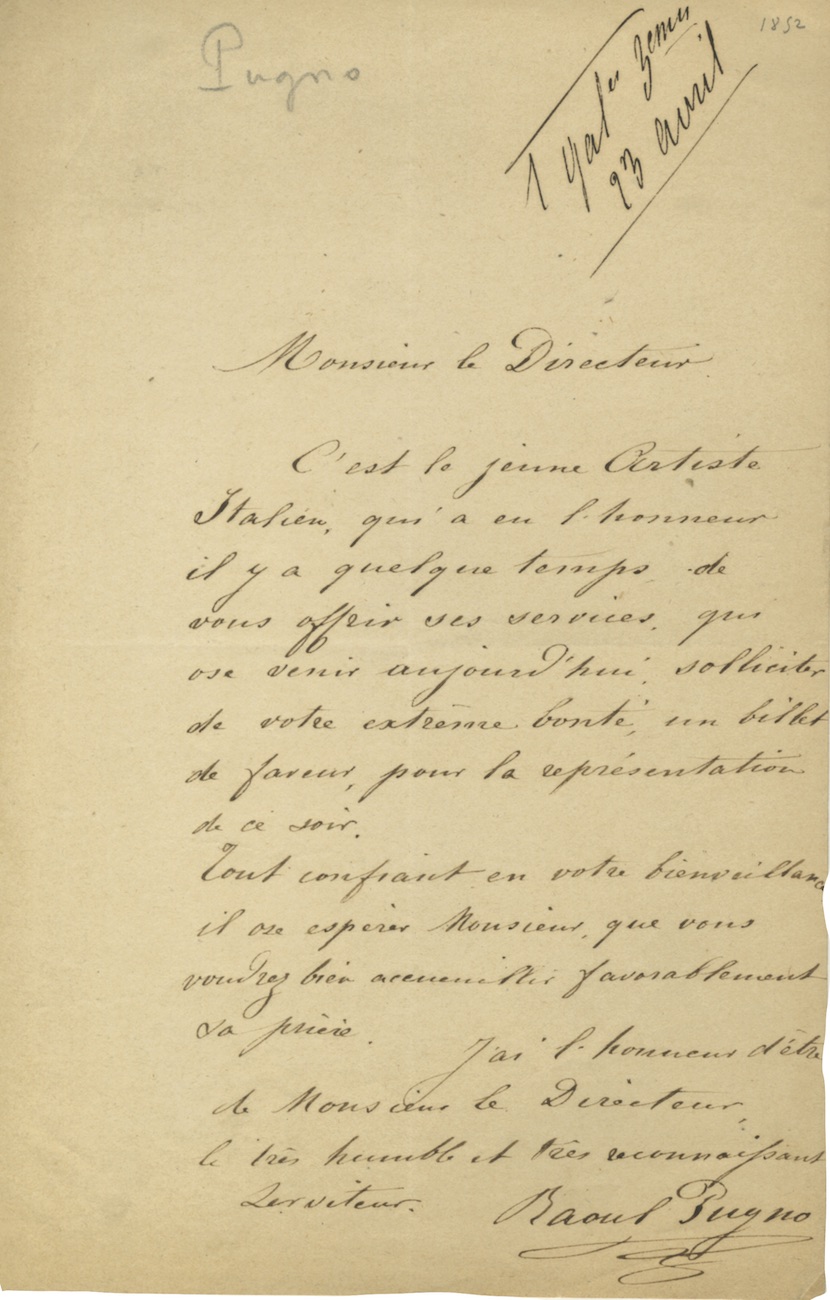 1852
Pugno
1 gal^es 3emes
23 avril
Monsieur le Directeur
C'est le jeune Artiste
Italien, qui a eu l'honneur
il y a quelque temps de
vous offrir ses services, qui
ose venir aujourd'hui, solliciter
de votre extrême bonté, un billet
de faveur, pour la représentation
de ce soir.
Tout confiant en votre bienveillance
il ose espérer Monsieur, que vous
voudrez bien accueuillir favorablement
sa prière.
J'ai l'honneur d'être
de Monsieur le Directeur,
le très humble et très reconnaissant
Serviteur.
Raoul Pugno